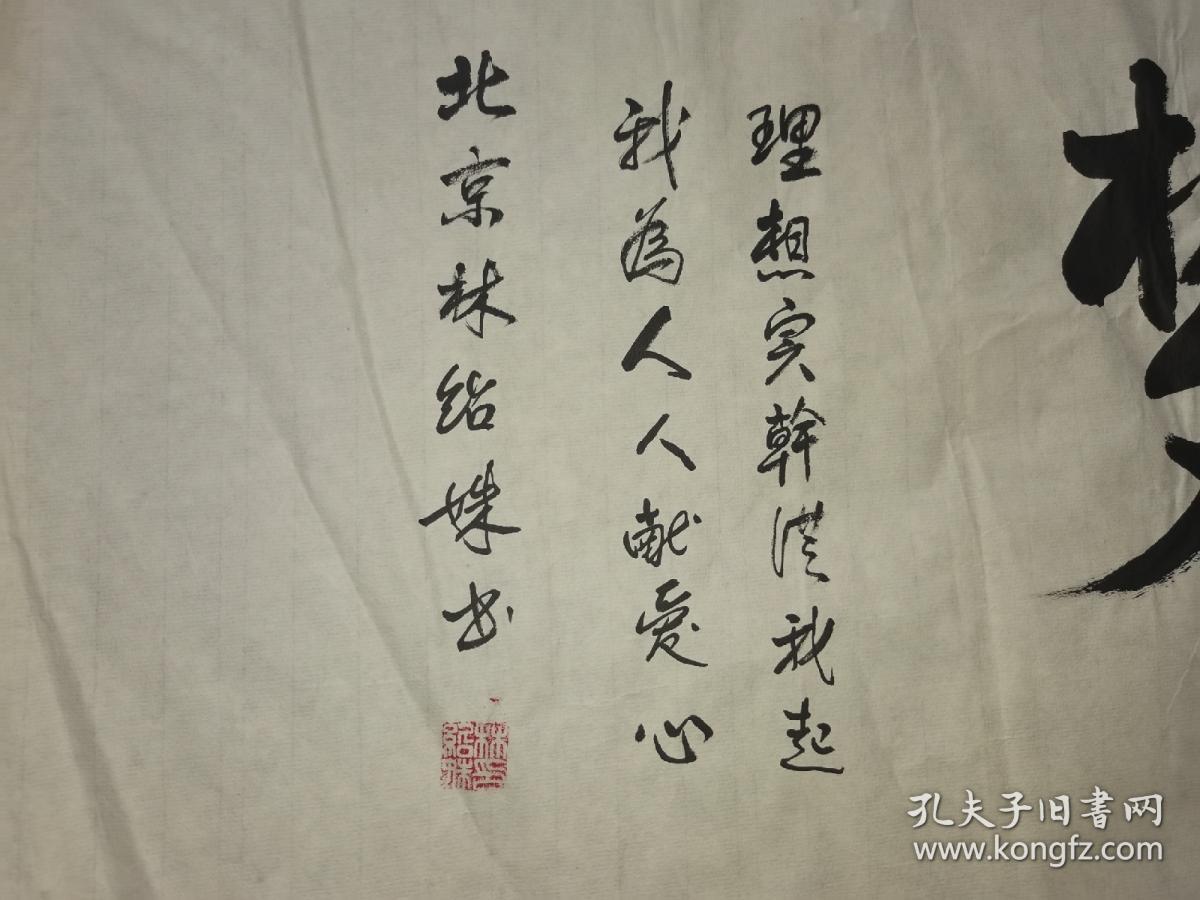 理想实幹從我起
我為人人献愛心
北京林绍姝书
孔夫子旧書网
www.kongfz.com